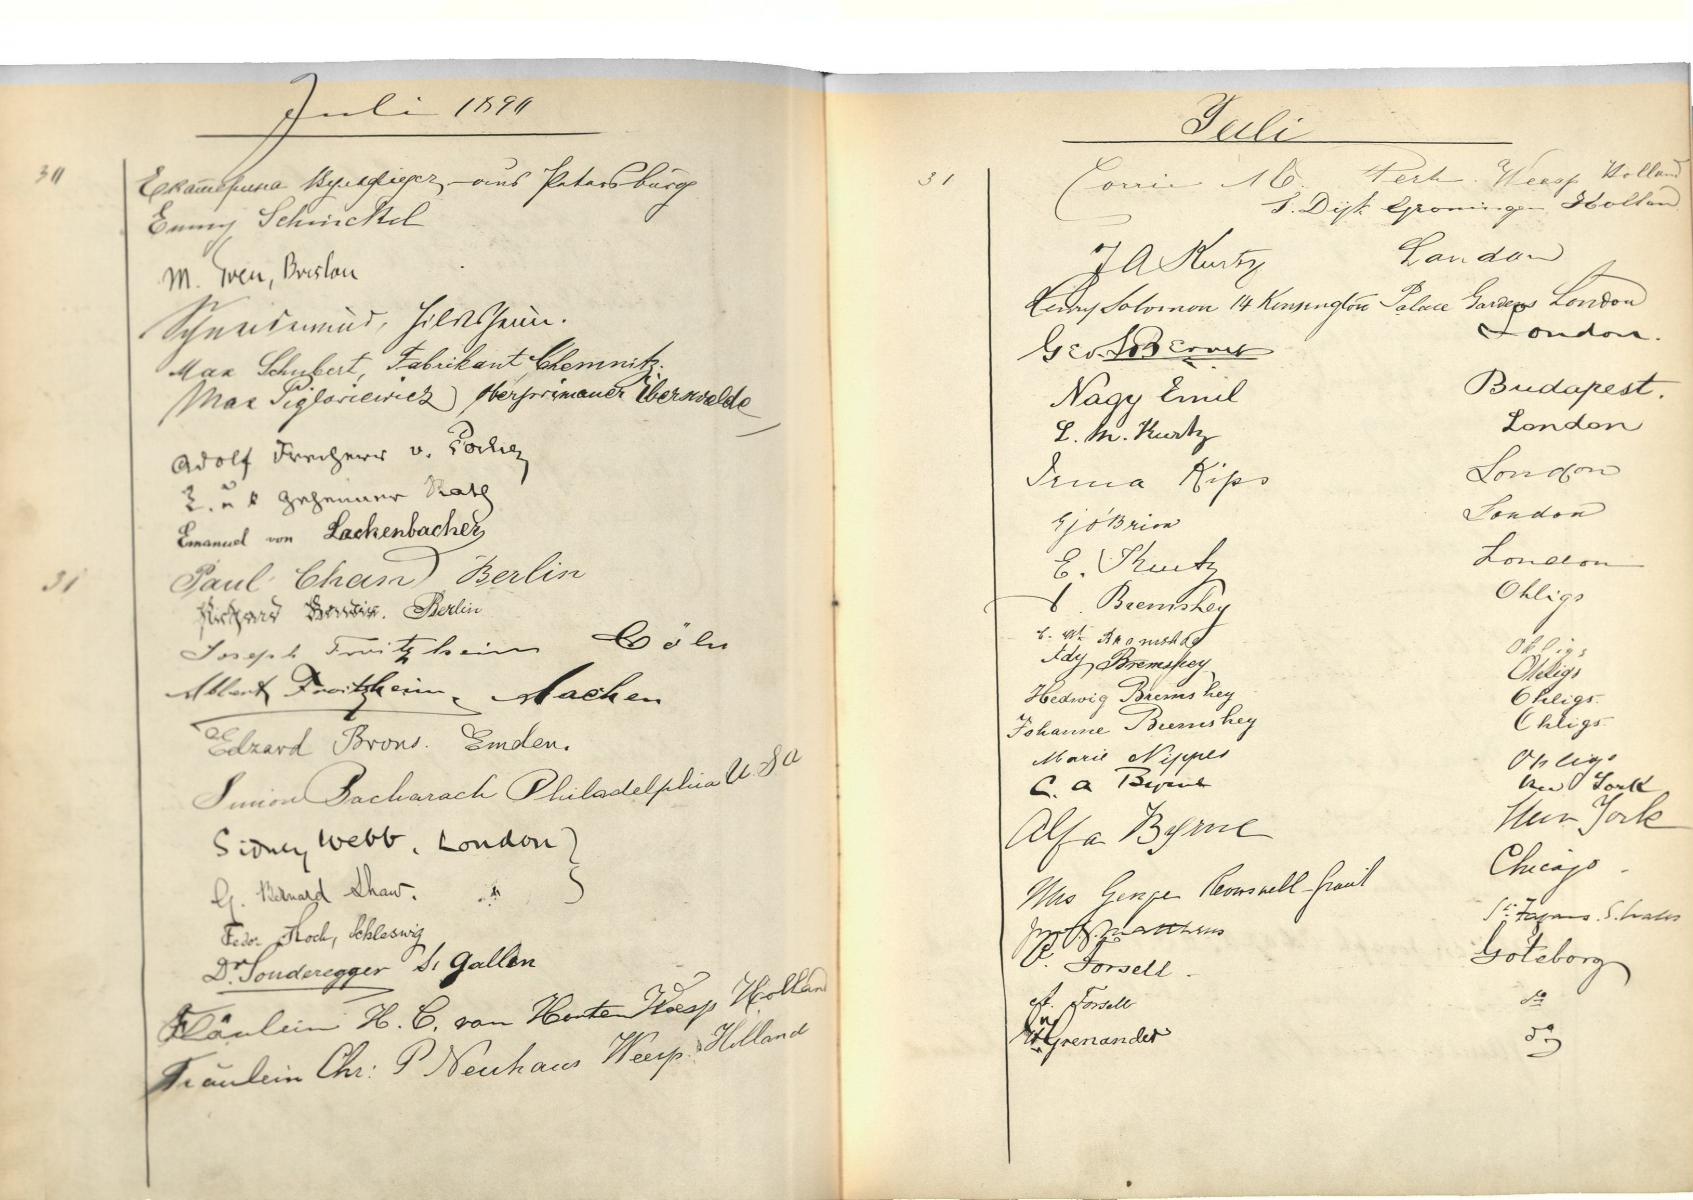 Juli 1890
30
Екатерина aus Petersburg
Emmy Schinckel
M. Breslau
Hildesheim.
Max Schubert, Fabrikant Chemnitz.
Max Oberprimaner
Adolf Freiherr v.
k. u. k geheimer Rath
Emanuel von Lackenbacher
31
Paul Berlin
Richard Berlin
Joseph Froitzheim Cöln
Albert Froitzheim, Aachen
Edzard Brons. Emden.
Simon Bacharach Philadelphia U S A
Sidney Webb, London }
G. Bernard Shaw. "
Fedor Koch, Schleswig
Dr. Sonderegger St gallen
Fräulein H. C. van Houten Weesp Holland
Fräulein Chr: P Neuhaus Weesp Holland
Juli
31
Corrie Weesp Holland
S. Dijk Groningen Holland
J A Kurtz London
Henry Solomon 14 Kensington Palace Gardens London
Geo. London.
Nagy Emil Budapest.
L. M. Kurtz London
Irma Kips London
O'Brien London
E. Kurtz London
Bremshey Ohligs
Bremshey Ohligs
Ady Bremshey Ohligs
Hedwig Bremshey Ohligs.
Johanne Bremshey Ohligs
Marie Nippes Ohligs
C. A Byrne New York
Alfa Byrne New York
Mrs George Chicago.
Matthews St. Fagans. S. Wales
Forsell Göteborg
A. Forsell do
Grenander do